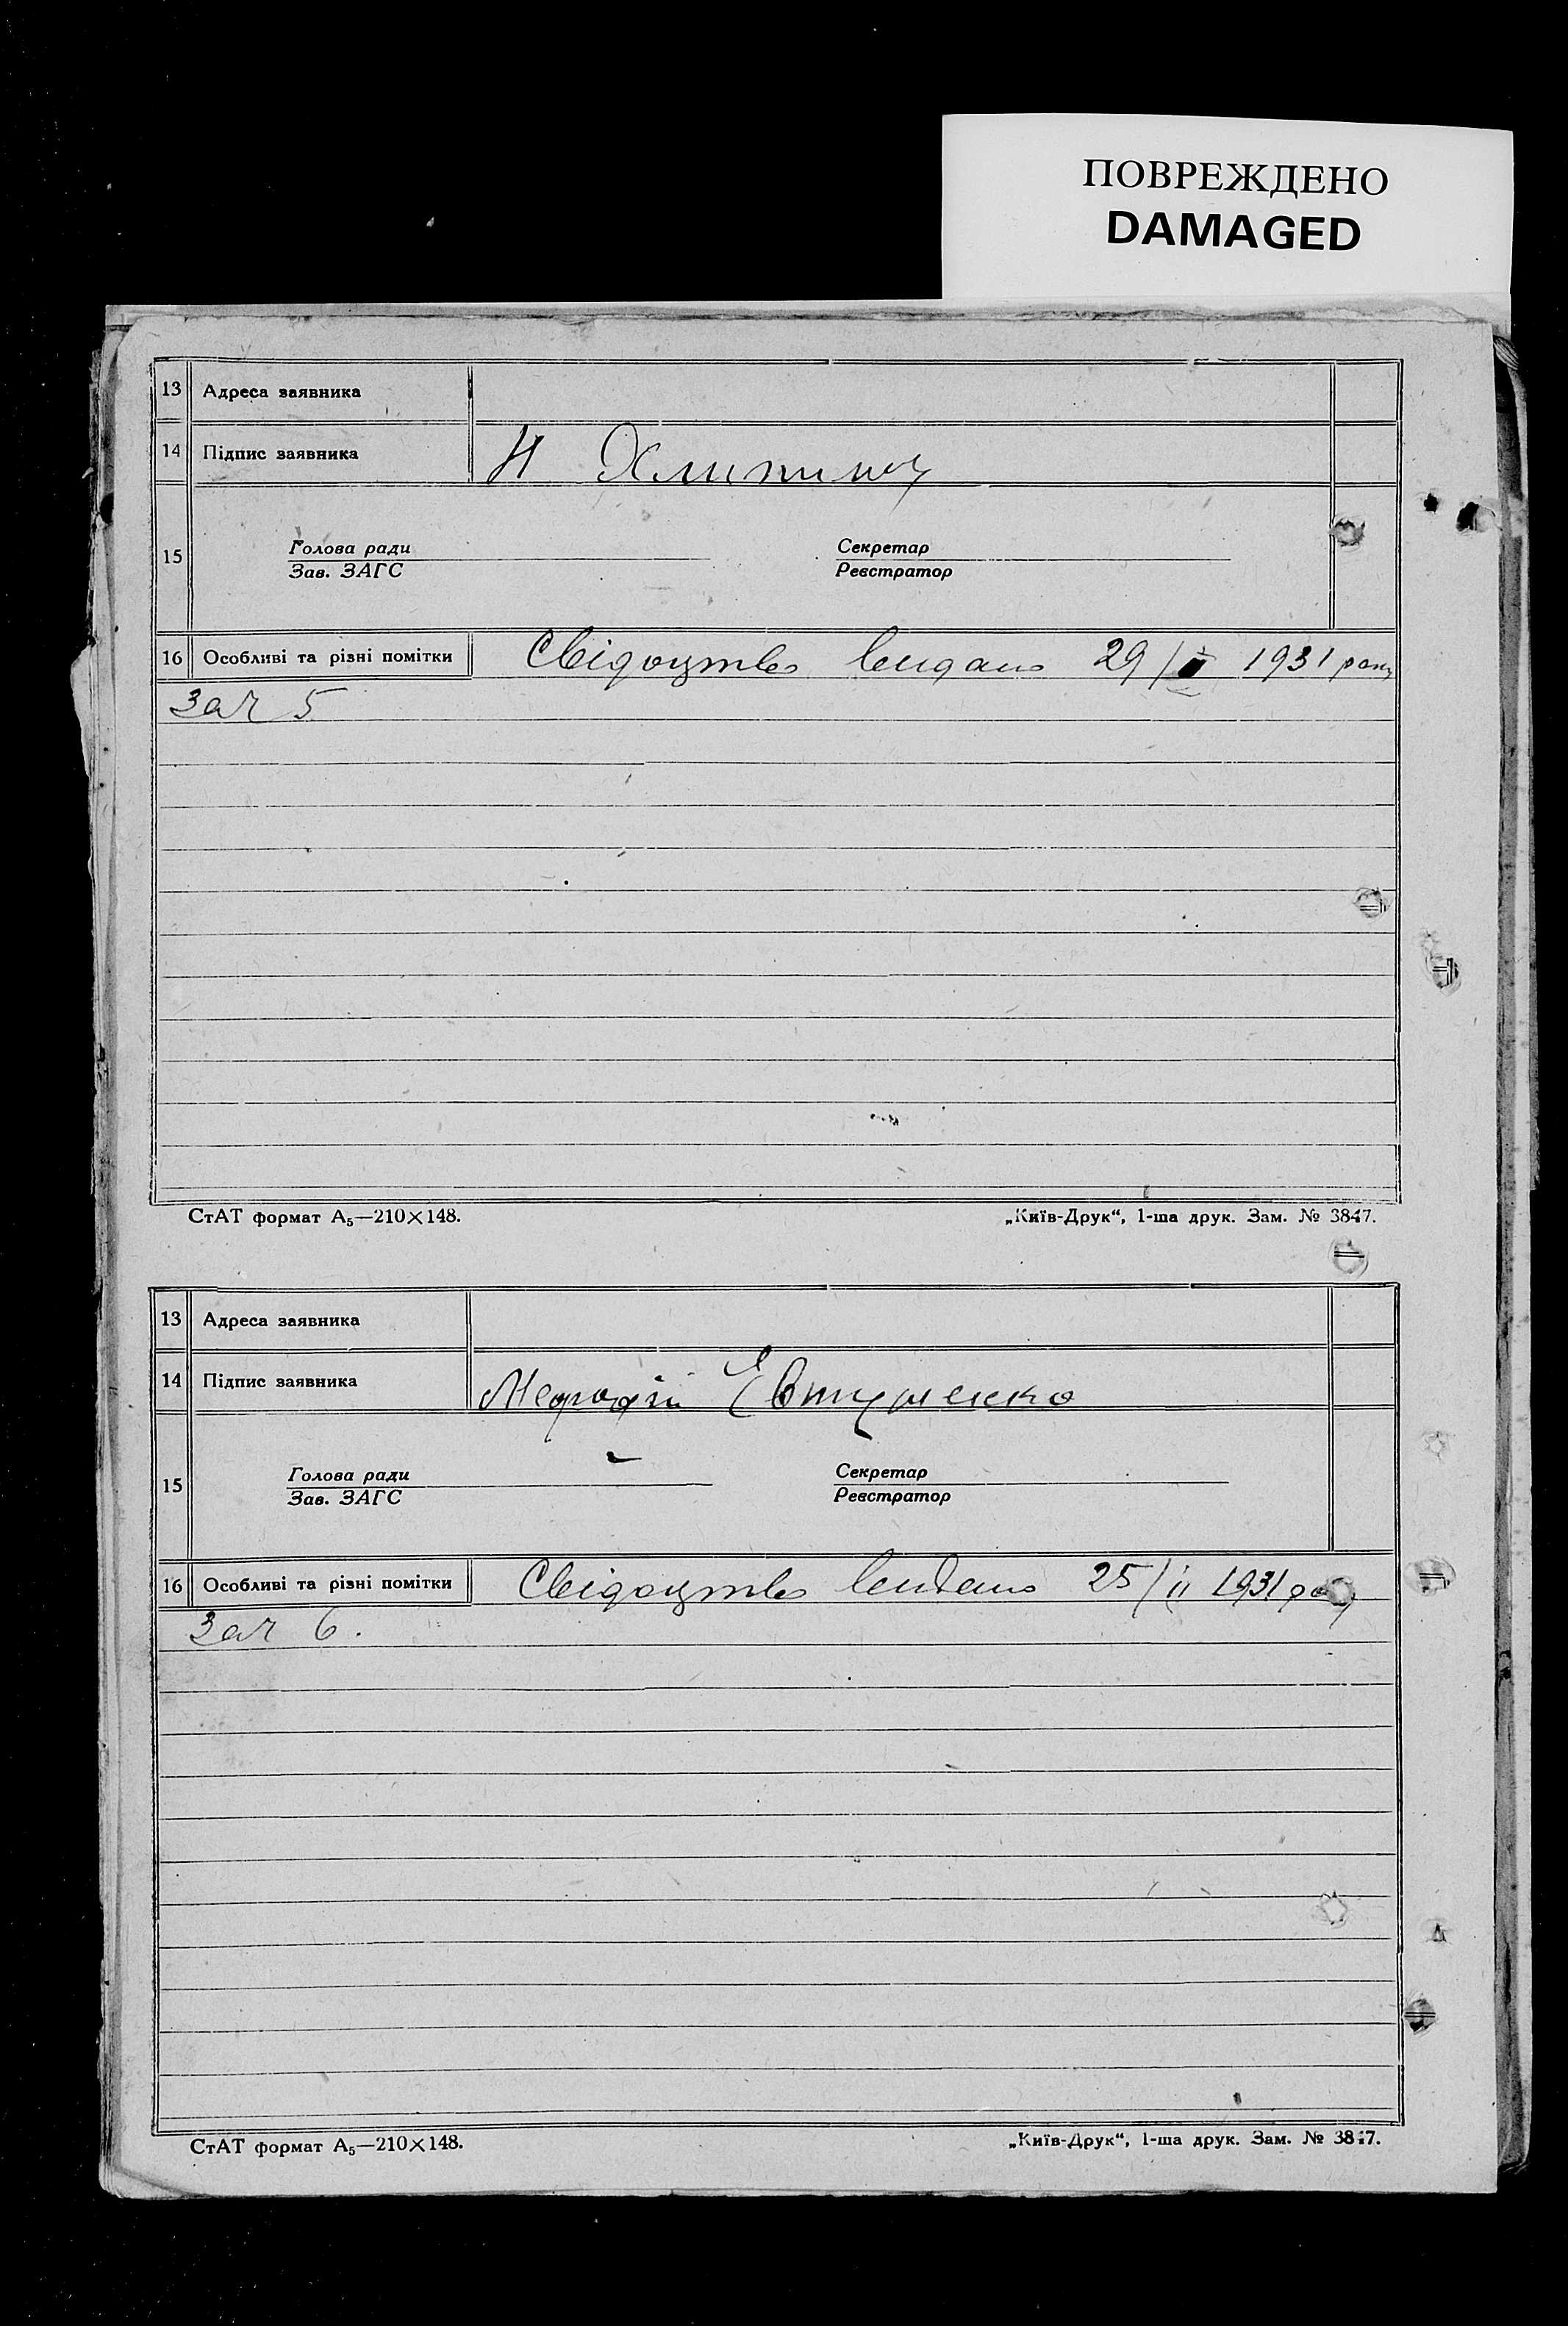 ПОВРЕЖДЕНО
DAMAGED
13 Адреса заявника
14 Підпис заявника Н
15 Голова ради Секретар
Зав. ЗАГС Реєстратор
16 Особливі та різні помітки Свідоцтво видано 29/ 1931 року
за № 5
СтАТ формат А₅—210×148. „Київ-Друк“, 1-ша друк. Зам. № 3847.
13 Адреса заявника
14 Підпис заявника Мефодій Євтушенко
15 Голова ради Секретар
Зав. ЗАГС Реєстратор
16 Особливі та різні помітки Свідоцтво видано 25/ІІ 1931 року
за № 6.
СтАТ формат А₅—210×148. „Київ-Друк“, 1-ша друк. Зам. № 3847.